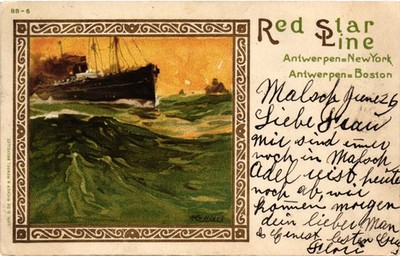 BB-6
Red Star
Line
Antwerpen=New York
Antwerpen=Boston
Malsch June 26
Liebe Frau
mir sind immer
noch in Malsch
Adel heute
noch ab, wir
kommen morgen
dein lieber Man
Ernest besten